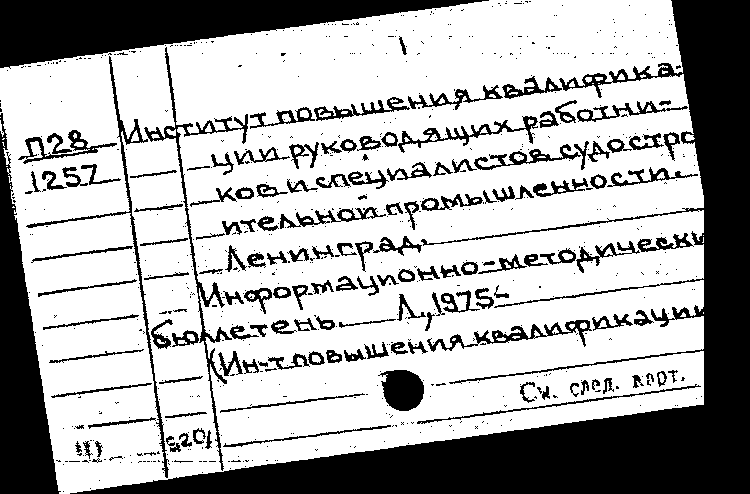 1
Институт повышения квалифика-
П28
ции руководящих работни-
1257
ков и специалистов судостро
ительной промышленности.
Ленинград.
Информационно-методически
бюллетень. Л., 1975-
(Ин-т повышения квалификации
См. след. карт.